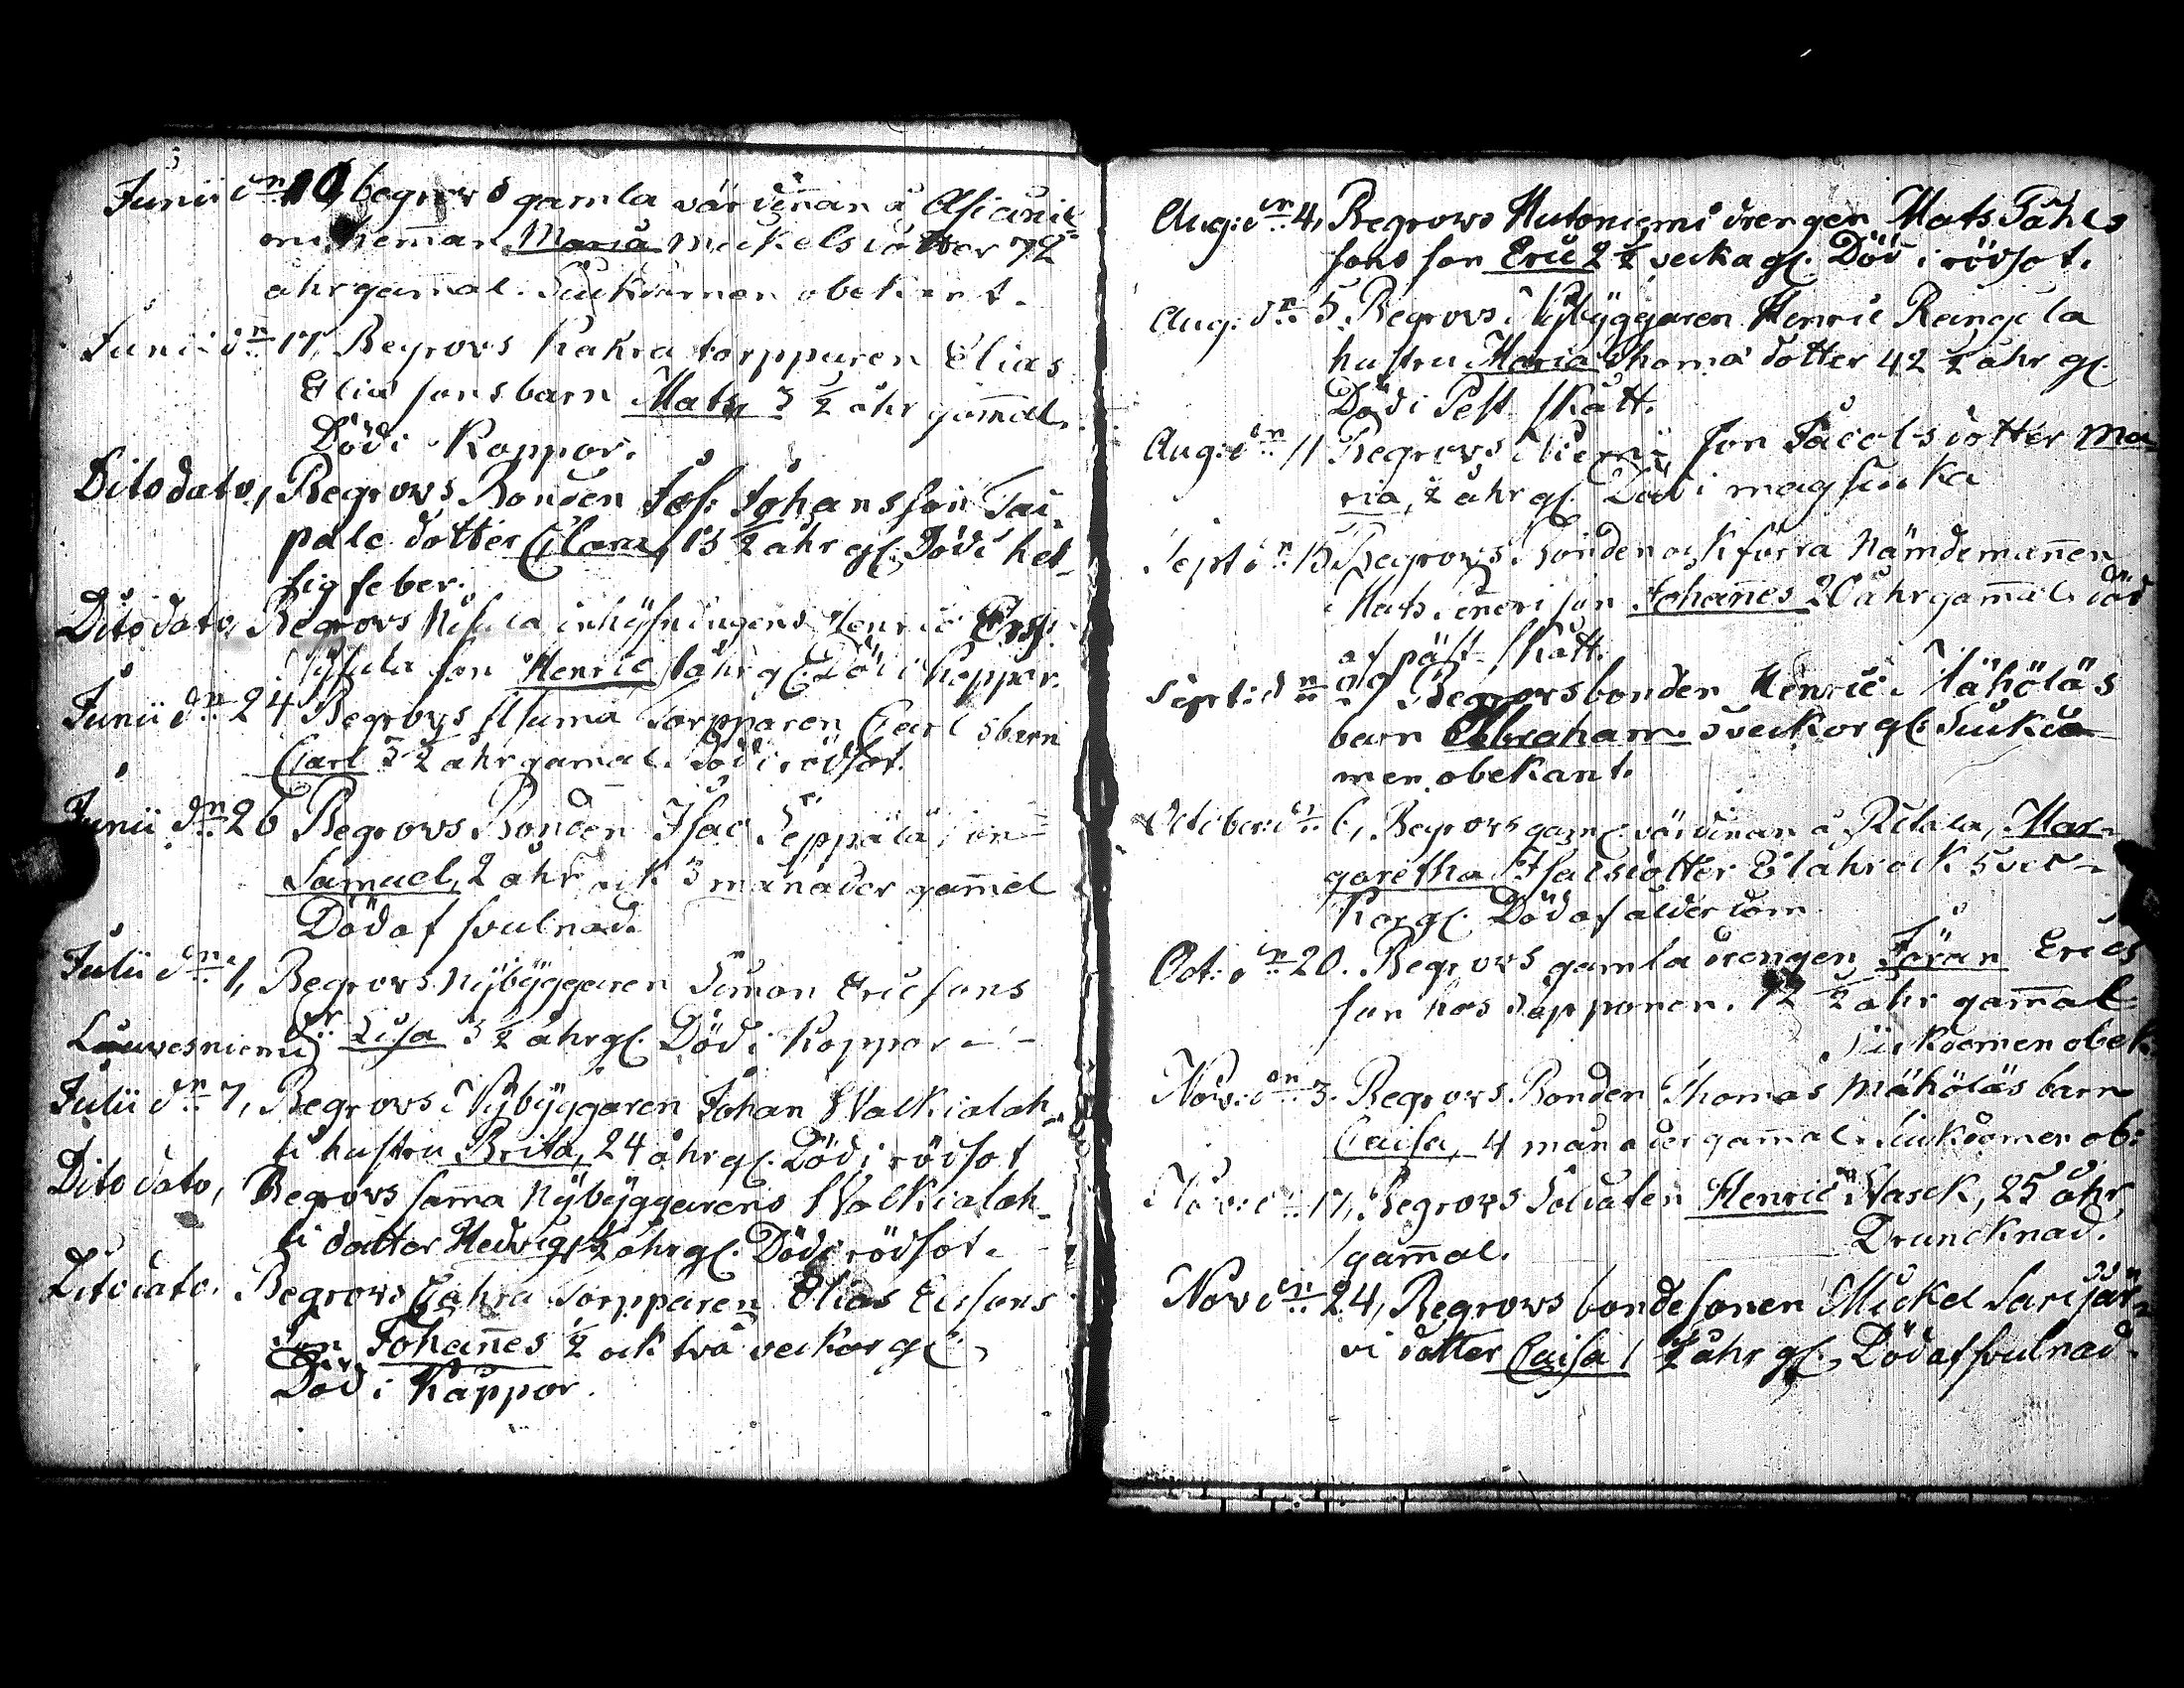 Junii d:n 10, begrovs gamla värdinan å
mi heman Maria Mickelsdotter 72
åhr gamal. Siukdomen obekent.
Junii d:n 17, Begrovs Kahra torpparen Elias
Elia sons barn Mats 3 ½ åhr gam̄al.
Död i Koppor.
Dito dato, Begrovs Bonden Jos: Johansson Tai-
pale dotter Clara, 13 ½ åhr gl. Död i het-
sig feber.
Dito dato, Begrovs inhysingens Henric
son Henric åhr gl. Död i Koppor.
Junii d:n 24 Begrovs Torpparen Carls barn
Carl 3 ½ åhr gamal. Död i rödsot.
Junii d:n 26 Begrovs Bonden Isac Seppälä son
Samuel, 2 åhr ock 3 månader gam̄al
Död af svulnad.
Julii d:n 1, Begrovs Nybyggaren Simon Ericsons
Lauvesniemi dr Lisa 3 ½ åhr gl. Död i Koppor
Julii d:n 7, Begrovs Nybyggaren Johan Walkialah-
ti hustru Brita, 24 åhr gl. Död i rödsot
Dito dato, Begrovs sam̄a Nybyggarens Walkialah-
ti datter Hedvig, ½ åhr gl. Död i rödsot.
Dito dato. Begrovs Cahra Torpparen Elias Elisons
son Johan̄es ½ ock två veckor gl.
Död i Kåppor.
Aug: d:n 4, Begrovs Hutoniemi drengen Mats Påhls
sons son Eric 2 ½ vecka gl. Död i rödsot.
Aug: d:n 5. Begrovs Nybyggaren Henric Rangela
hustru Maria Thomadotter 42 ½ åhr gl.
Död i Pest skått.
Aug: d:n 11 Begrovs Niemis son Jacobs dotter Ma-
ria, ½ åhr gl. Död i magsiuka
Sept d:n 15 Begrovs Bonden ock förra Nämdeman̄en
Mats son Johan̄es 20 åhr gam̄al. död
af päst-skått.
Sept: d:n 29 Begrovs bonden Henric Mähöläs
barn Abraham 5 veckor gl. Siukdo-
men obekant.
October d:n 6, Begrovs gaml. värdinan å Ritala, Mar-
garetha Isacsdotter 81 åhr ock 5 vec-
kor gl. Död af ålderdom
Oct: d:n 20. Begrovs gamla drengen Jöran Erics
son hos 72 ½ åhr gam̄al
Siukdomen obek.
Nov: d:n 3. Begrovs Bonden Thomas Mähöläs barn
Caisa, 4 månader gam̄al. Siukdomen ob:
Nov: d:n 17, Begrovs Soldaten Henric Wasck, 25 åhr
gam̄al. Druncknad.
Nov d:n 24, Begrovs bondesonen Mickel Sarijär-
vi datter Caisa 1 ½ åhr gl. Död af svulnad.